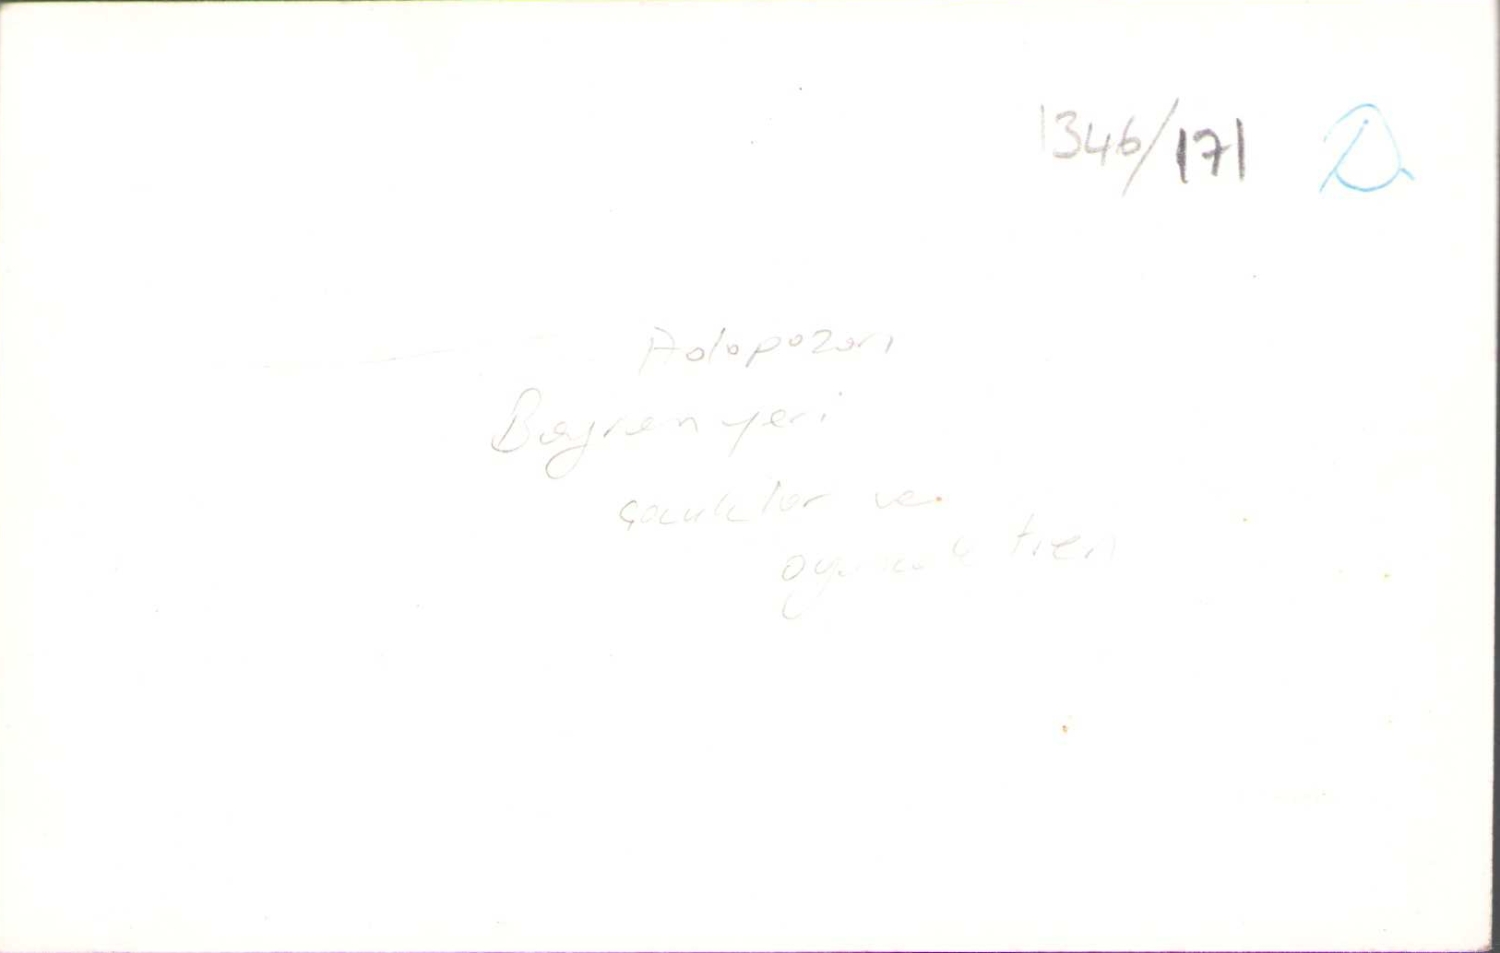 1346/171
Adapazarı
Bayram yeri
çocuklar ve
oyuncak tren